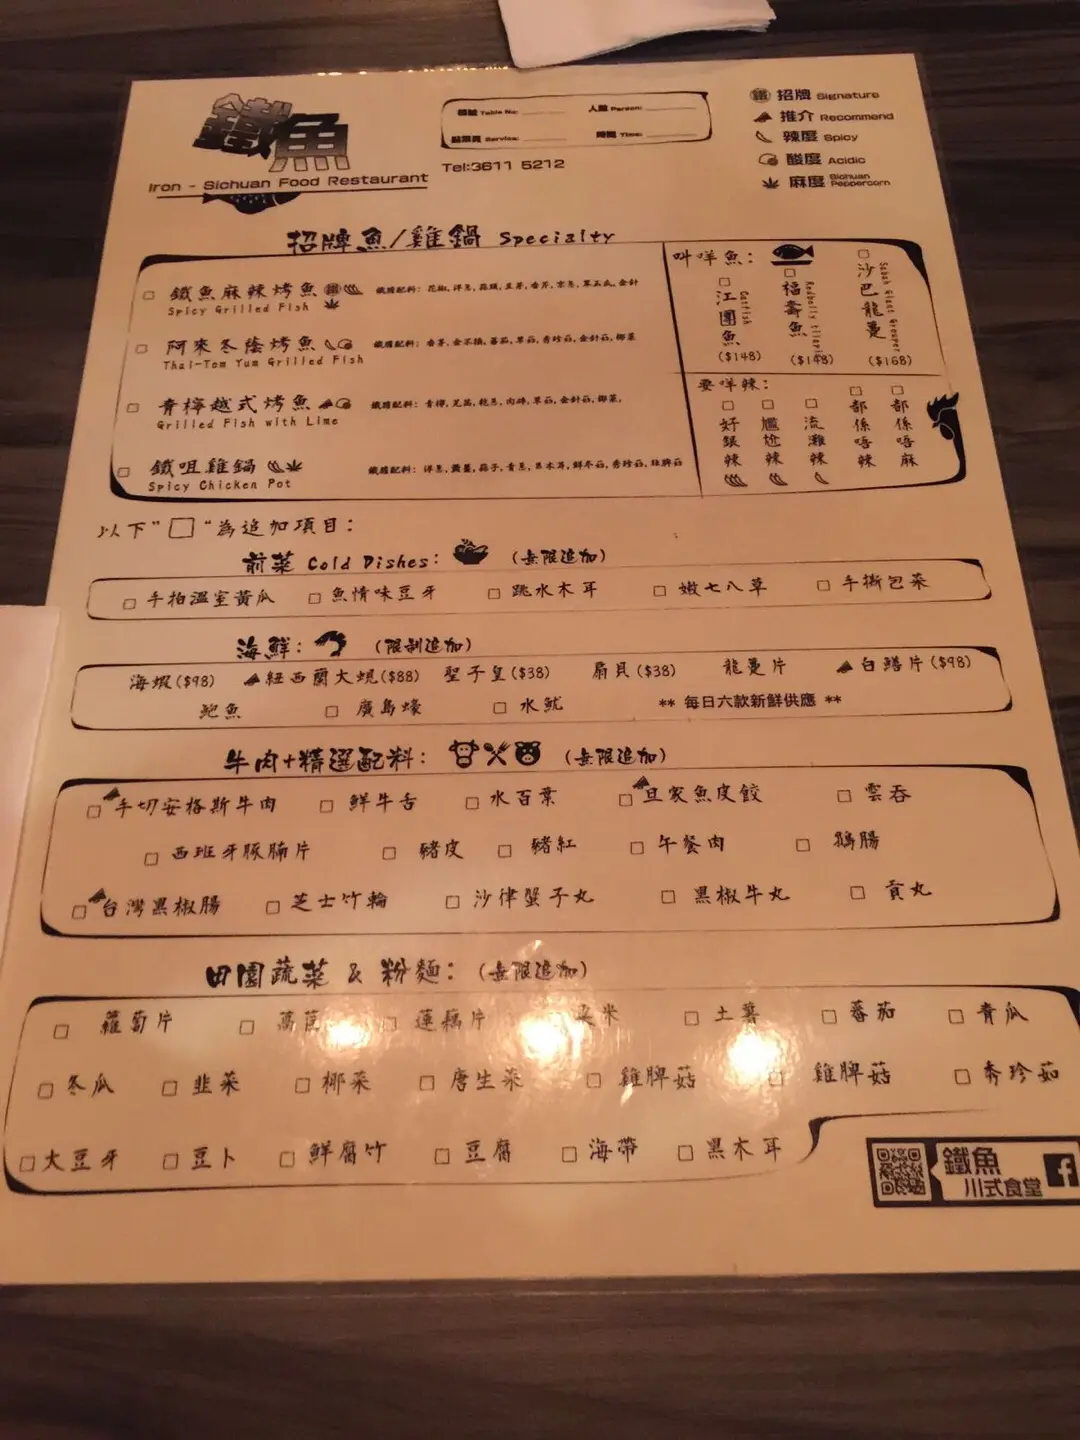 鐵魚
Iron - Sichuan Food Restaurant
檯號 Table No: 人數 Person:
點菜員 Service: 時間 Time:
Tel:3611 5212
招牌 Signature
推介 Recommend
辣度 Spicy
酸度 Acidic
麻度 Sichuan Peppercorn
招牌魚/雞鍋 Specialty
□ 鐵魚麻辣烤魚
Spicy Grilled Fish
□ 阿來冬蔭烤魚
Thai-Tom Yum Grilled Fish
□ 青檸越式烤魚
Grilled Fish with Lime
□ 鐵咀雞鍋
Spicy Chicken Pot
叫咩魚:
□ 江團魚 Catfish ($148)
□ 福壽魚 Redbelly tilapia ($148)
□ 沙巴龍躉 Sabah Giant Grouper ($168)
要咩辣:
□ 好銀辣
□ 尷尬辣
□ 流灘辣
□ 都係唔辣
□ 都係唔麻
以下"□"為追加項目:
前菜 Cold Dishes: (無限追加)
□ 手拍溫室黃瓜 □ 魚情味豆牙 □ 跳水木耳 □ 嫩七八草 □ 手撕包菜
海鮮: (限制追加)
海蝦($98) 紐西蘭大蜆($88) 聖子皇($38) 扇貝($38) 龍躉片 白鱔片($98)
鮑魚 □ 廣島蠔 □ 水魷 ** 每日六款新鮮供應 **
牛肉+精選配料: (無限追加)
□ 手切安格斯牛肉 □ 鮮牛舌 □ 水百葉 □ 旦家魚皮餃 □ 雲吞
□ 西班牙豚腩片 □ 豬皮 □ 豬紅 □ 午餐肉 □ 鵝腸
□ 台灣黑椒腸 □ 芝士竹輪 □ 沙律蟹子丸 □ 黑椒牛丸 □ 貢丸
田園蔬菜 & 粉麵: (無限追加)
□ 蘿蔔片 □ 萵苣 □ 蓮藕片 米 □ 土薯 □ 番茄 □ 青瓜
□ 冬瓜 □ 韭菜 □ 椰菜 □ 唐生菜 □ 雞脾菇 □ 雞脾菇 □ 秀珍茹
□ 大豆牙 □ 豆卜 □ 鮮腐竹 □ 豆腐 □ 海帶 □ 黑木耳
鐵魚
川式食堂
f